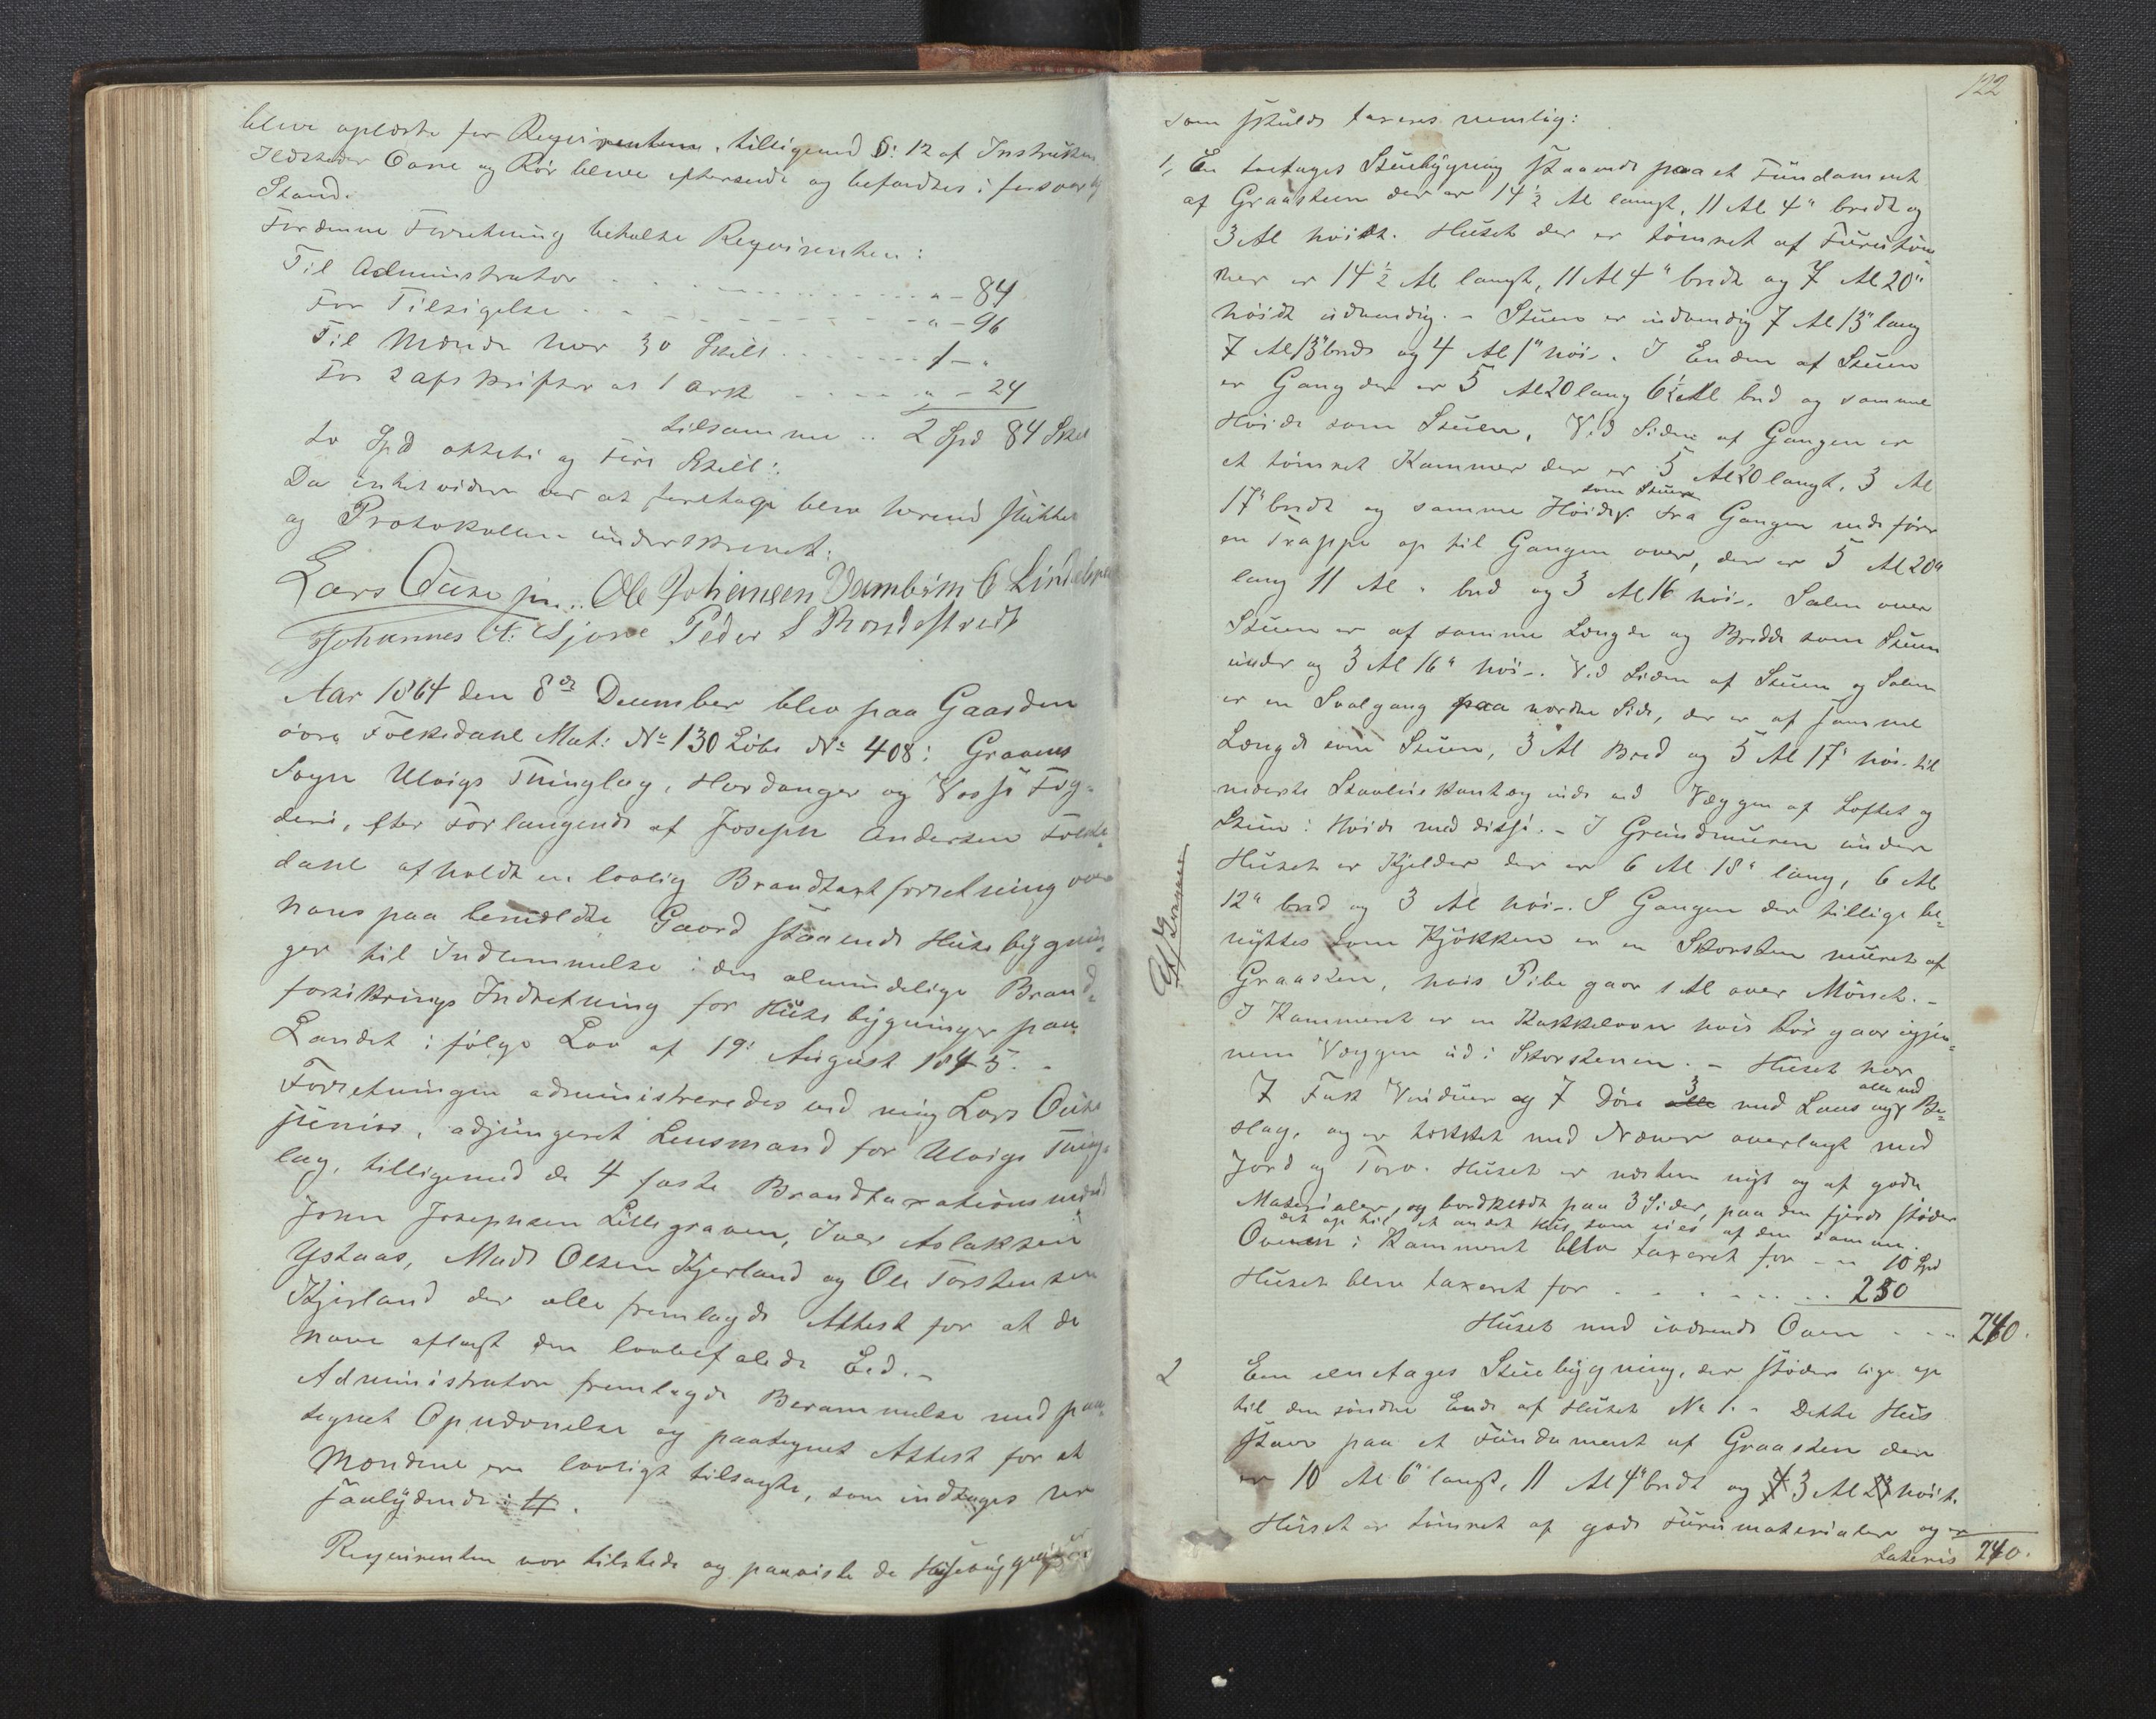 bleve oplæste for Reqvirenten, tilligemed §: 12 af Instruksen
Ildsteder Ovne og Rør bleve efterseede og befandtes i forsvarlig
Stand.
For denne Forretning betalte Reqvirenten:
Til Administrator . . . . . . . " - 84
For Tilsigelse . . . . . . . " - 96
Til Mænde hver 30 Skill . . . . . 1 - "
For 2 afskrifter at 1 Ark . . . . " - 24
tilsammen .. 2 Spd 84 Skill
to Spd otteti og Fire Skill:
Da intet videre var at foretage blev hermed sluttet
og Protokollen underskrevet.
Lars Ouse jun.. Ole Johansen Vambeim
Johannes A: Sjone Peder S
Aar 1864 den 8de December blev paa Gaarden
övre Folkedahl Mat: No 130 Löbe No 408: Gravens
Sogn Ulvigs Thinglag, Hardanger og Vosse Fog-
deri, efter Forlangende af Joseph Andersen Folke-
dahl afholdt en lovlig Brandtaxtforretning over
hans paa bemeldte Gaard staaende Husebygnin-
ger til Indlemmelse i den almindelige Brand-
forsikrings Indretning for Husebygninger paa
Landet i følge Lov af 19: August 1845. -
Forretningen administreredes ved mig Lars Ouse
junior, adjungeret Lensmand for Ulvigs Thing-
lag, tilligemed de 4 faste Brandtaxationsmænd
John Josephsen Lillegraven, Iver Aslaksen
Ystaas, Mads Olsen Kjerland og Ole Torstensen
Kjerland der alle fremlagde Attest for at de
have aflagt den lovbefalede Eed. -
Administrator fremlagde Berammelse med paa-
tegnet Opnævnelse og paategnet Attest for at
Mændene ere lovligt tilsagte, som indtages her
saalydende: #.
Reqvirenten var tilstede og paaviste de Husebygninger
122
som skulde taxeres nemlig:
1, En toetages Stuebygning staaende paa et Fundament
af Graasteen der er 14 1/2 Al langt, 11 Al 4" bredt og
3 Al höidt. Huset der er tömret af Furutöm
mer er 14 1/2 Al langt, 11 Al 4" bredt og 7 Al 20"
höidt udvendig. - Stuen er indvendig 7 Al 13" lang
7 Al 13" bred og 4 Al 1" höi -. I Enden af Stuen
er Gang der er 5 Al 20 lang 6 1/2 Al bred og samme
Höide som Stuen, Ved Siden af Gangen er
et tömret Kammer der er 5 Al 20 langt, 3 Al
som Stuen
17" bredt og samme Höide. Fra Gangen nede förer
en Trappe op til Gangen over, der er 5 Al 20"
lang 11 Al " bred og 3 Al 16 höi -. Salen over
Stuen er af samme Længde og Bredde som Stuen
under og 3 Al 16" höi -. Ved Siden af Stuen og Salen
er en Svalgang paa nordre Side, der er af samme
Længde som Stuen, 3 Al Bred og 5 Al 17" höi - til
nederste Kant og inde ved Væggen af Loftet og
Stuen i Höide med disse. - I Grundmuren under
Huset er Kjelder der er 6 Al 18" lang, 6 Al
12" bred og 3 Al höi -. I Gangen der tillige be-
nyttes som Kjökken er en Skorsten muret af
Graasten, hvis Pibe gaar 1 Al over Mönet. -
I Kammeret er en Kakkelovn hvis Rör gaar igjen-
nem Væggen ud i Skorstenen. - Huset har
7 Fast Vinduer og 7 Döre alle 3 med Laas og alle med Be-
slag, og er tækket med Næver overlagt med
Jord og Torv. Huset er næsten nyt og af gode
Materialer, og bordklædt paa 3 Sider, paa den fjerde støder
det op til et andet Hus som eies af den samme.
Ovnen i Kammeret blev taxeret for - " 10 Spd
Huset blev taxeret for . . . . . . . 230
Huset med iværende Ovn . . . . 240.
2 En eenetages Stuebygning, der støder lige op
til den söndre Ende af Huset No 1. - Dette Hus
staar paa et Fundament af Graasten der
er 10 Al 6" langt, 11 Al 4" bredt og 3 Al höit.
Huset er tömret af gode Furumaterialer og er
Lateris 240.